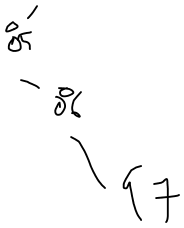 85
86
97